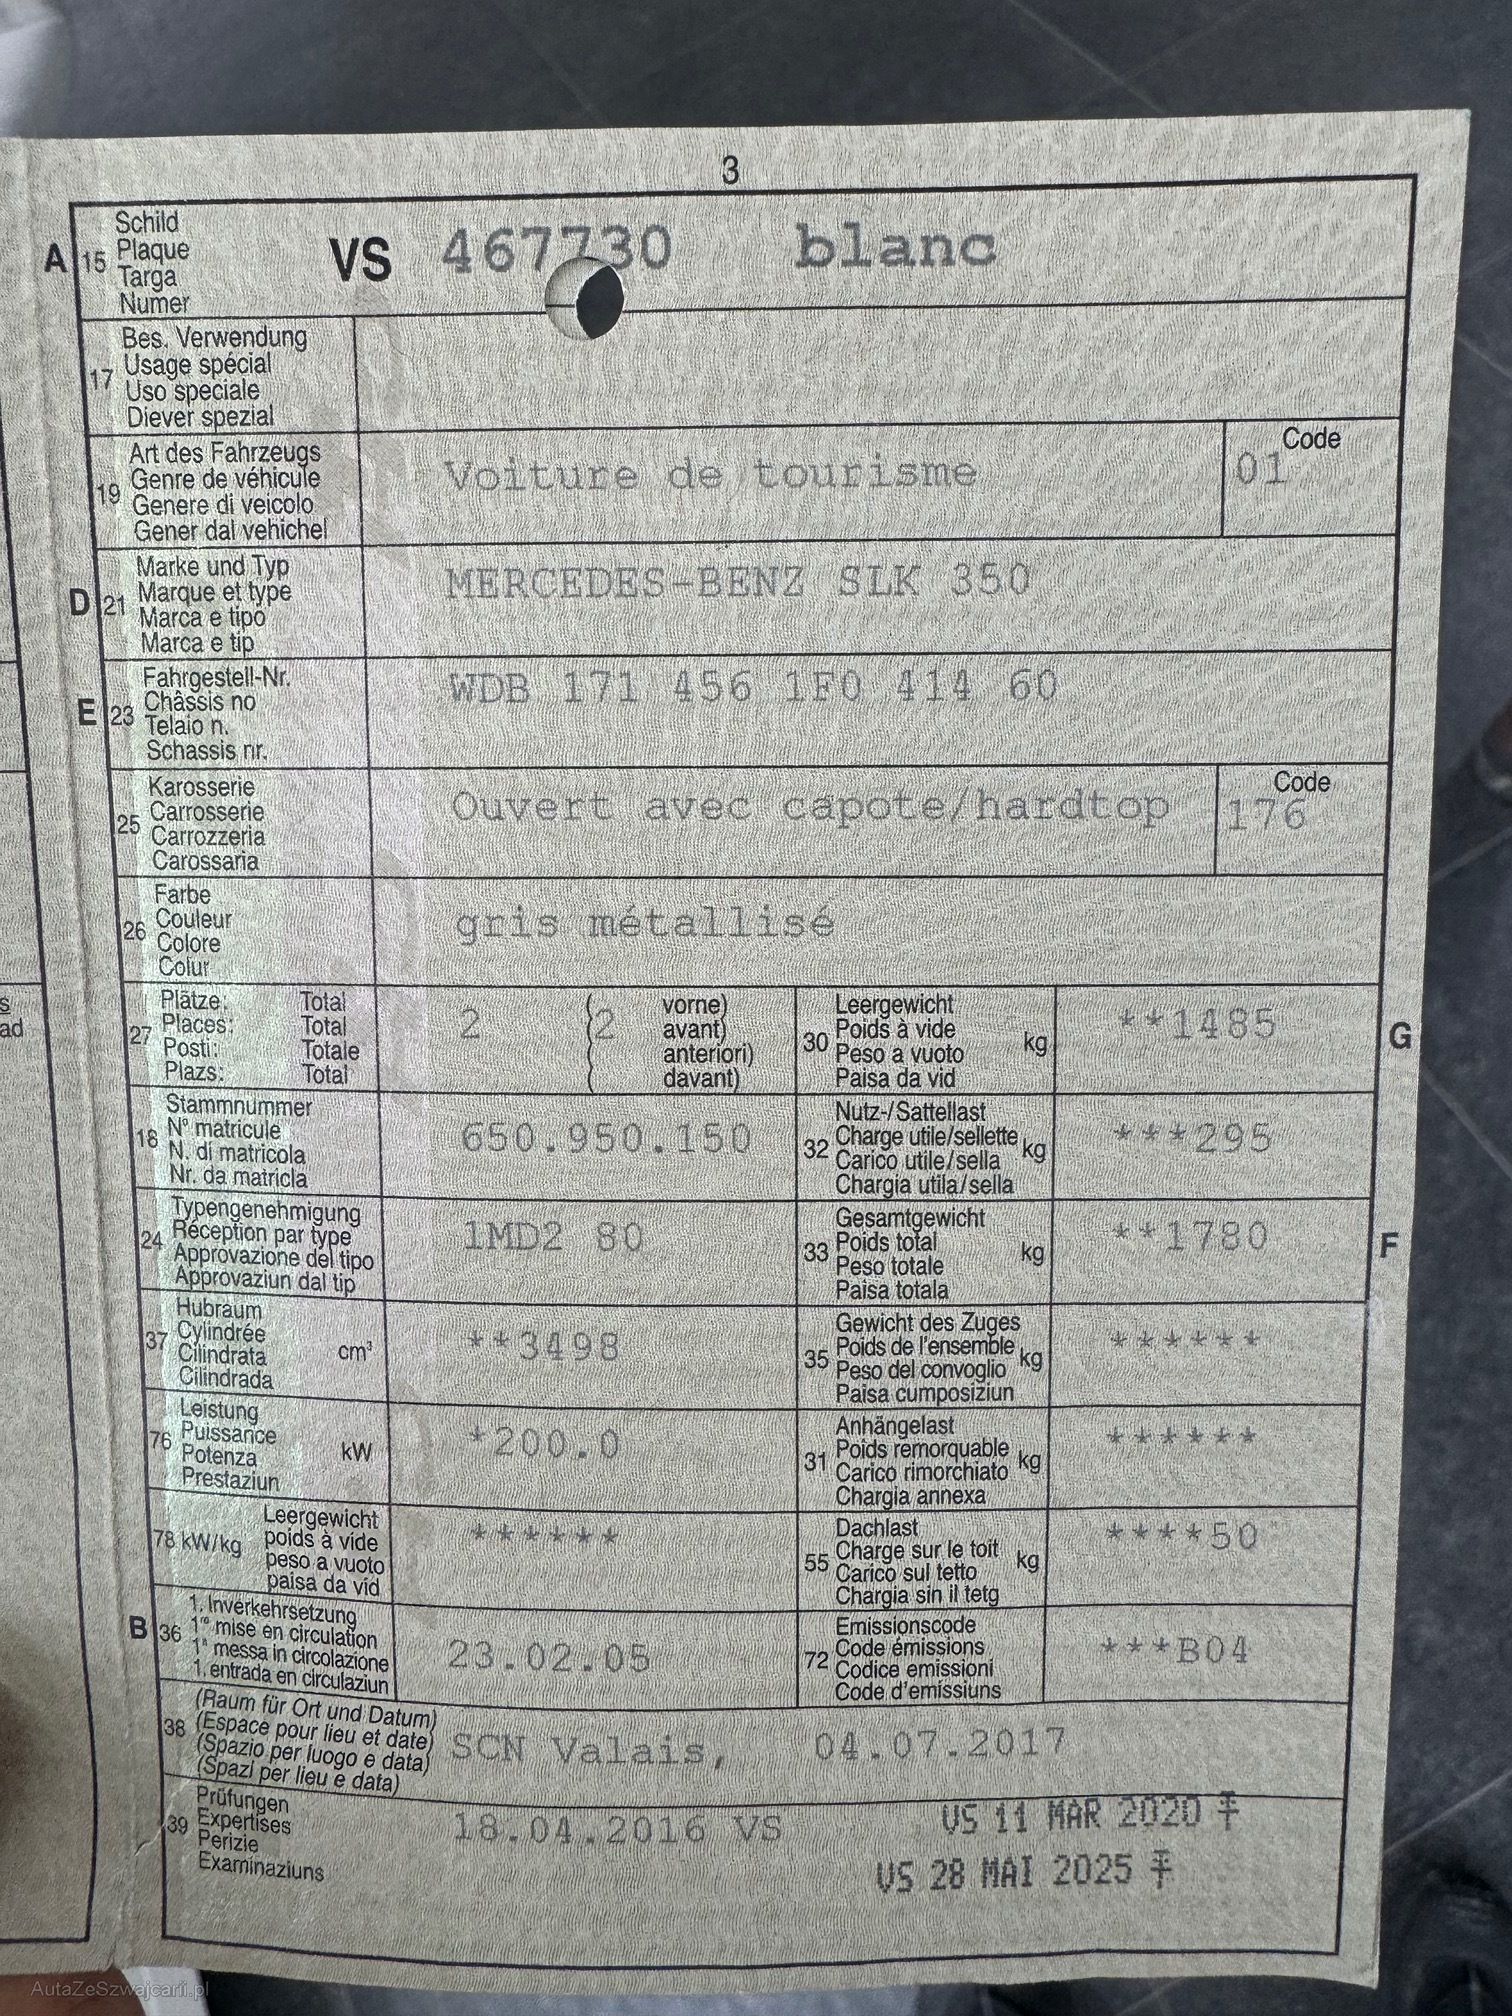 3
A 15 Schild
Plaque
Targa
Numer
VS 467730 blanc
17 Bes. Verwendung
Usage spécial
Uso speciale
Diever spezial
19 Art des Fahrzeugs
Genre de véhicule
Genere di veicolo
Gener dal vehichel
Voiture de tourisme
Code
01
D 21 Marke und Typ
Marque et type
Marca e tipo
Marca e tip
MERCEDES-BENZ SLK 350
E 23 Fahrgestell-Nr.
Châssis no
Telaio n.
Schassis nr.
WDB 171 456 1F0 414 60
25 Karosserie
Carrosserie
Carrozzeria
Carossaria
Ouvert avec capote/hardtop
Code
176
26 Farbe
Couleur
Colore
Colur
gris métallisé
s
ad
27 Plätze: Total
Places: Total
Posti: Totale
Plazs: Total
2 (2 vorne)
( avant)
( anteriori)
( davant)
30 Leergewicht
Poids à vide
Peso a vuoto
Paisa da vid
kg
**1485
G
18 Stammnummer
N° matricule
N. di matricola
Nr. da matricla
650.950.150
32 Nutz-/Sattellast
Charge utile/sellette
Carico utile/sella
Chargia utila/sella
kg
***295
24 Typengenehmigung
Réception par type
Approvazione del tipo
Approvaziun dal tip
1MD2 80
33 Gesamtgewicht
Poids total
Peso totale
Paisa totala
kg
**1780
F
37 Hubraum
Cylindrée
Cilindrata
Cilindrada
cm³
**3498
35 Gewicht des Zuges
Poids de l'ensemble
Peso del convoglio
Paisa cumposiziun
kg
******
76 Leistung
Puissance
Potenza
Prestaziun
kW
*200.0
31 Anhängelast
Poids remorquable
Carico rimorchiato
Chargia annexa
kg
******
78 kW/kg Leergewicht
poids à vide
peso a vuoto
paisa da vid
******
55 Dachlast
Charge sur le toit
Carico sul tetto
Chargia sin il tetg
kg
****50
B 36 1. Inverkehrsetzung
1re mise en circulation
1a messa in circolazione
1. entrada en circulaziun
23.02.05
72 Emissionscode
Code émissions
Codice emissioni
Code d'emissiuns
***B04
38 (Raum für Ort und Datum)
(Espace pour lieu et date)
(Spazio per luogo e data)
(Spazi per lieu e data)
SCN Valais, 04.07.2017
39 Prüfungen
Expertises
Perizie
Examinaziuns
18.04.2016 VS
VS 11 MAR 2020
VS 28 MAI 2025
AutaZeSzwajcarii.pl